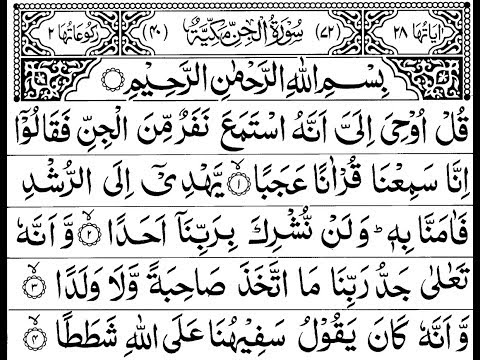 اٰیَاتُهَا ٢٨ (٧٢) سُوْرَةُ الْجِنِّ مَكِّیَّةٌ (٤٠) رُكُوْعَاتُهَا ٢
بِسْمِ اللّٰهِ الرَّحْمٰنِ الرَّحِیْمِ
قُلْ اُوْحِیَ اِلَیَّ اَنَّهُ اسْتَمَعَ نَفَرٌ مِّنَ الْجِنِّ فَقَالُوْۤا
اِنَّا سَمِعْنَا قُرْاٰنًا عَجَبًا ۙ‏﴿١﴾ یَّهْدِیْۤ اِلَی الرُّشْدِ
فَاٰمَنَّا بِهٖ ؕ وَلَنْ نُّشْرِكَ بِرَبِّنَاۤ اَحَدًا ۙ‏﴿٢﴾ وَّ اَنَّهٗ
تَعٰلٰی جَدُّ رَبِّنَا مَا اتَّخَذَ صَاحِبَةً وَّلَا وَلَدًا ۙ‏﴿٣﴾
وَّ اَنَّهٗ كَانَ یَقُوْلُ سَفِیْهُنَا عَلَی اللّٰهِ شَطَطًا ۙ‏﴿٤﴾